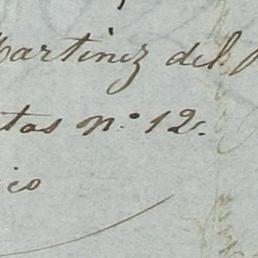 Martinez del
tas n.o 12.
ico